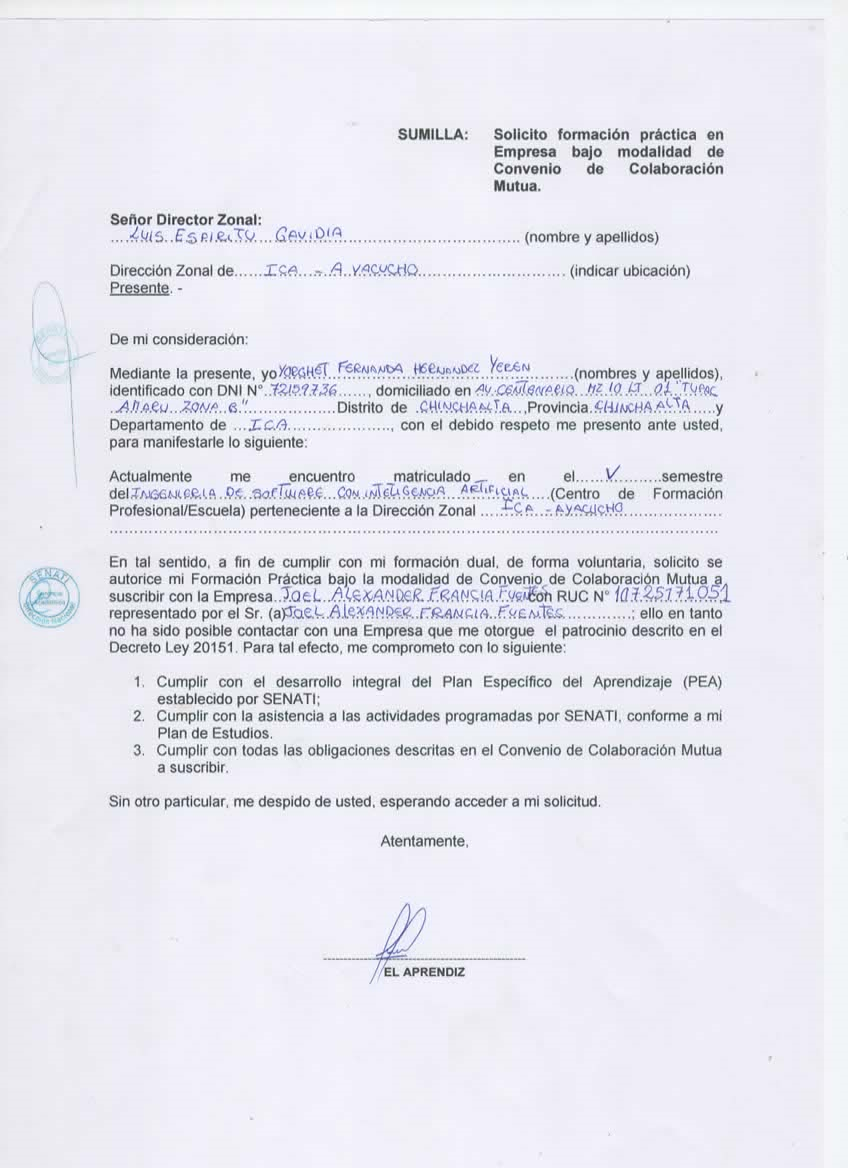 SUMILLA: Solicito formación práctica en
Empresa bajo modalidad de
Convenio de Colaboración
Mutua.
Señor Director Zonal:
....LUIS ESPIRITU GAVIDIA........................................ (nombre y apellidos)
Dirección Zonal de......ICA - AYACUCHO................................. (indicar ubicación)
Presente. -
De mi consideración:
Mediante la presente, yo YORGHET FERNANDA HERNANDEZ YEREN..........(nombres y apellidos),
identificado con DNI N° 72159736......, domiciliado en AV CENTENARIO MZ 10 LT 01 "TUPAC
AMARU ZONA B"....................Distrito de CHINCHA ALTA.,Provincia CHINCHA ALTA.....y
Departamento de ...ICA......................, con el debido respeto me presento ante usted,
para manifestarle lo siguiente:
Actualmente me encuentro matriculado en el......V..........semestre
del INGENIERIA DE SOFTWARE CON INTELIGENCIA ARTIFICIAL....(Centro de Formación
Profesional/Escuela) perteneciente a la Dirección Zonal ....ICA - AYACUCHO.....................
..........................................................................................................................................
En tal sentido, a fin de cumplir con mi formación dual, de forma voluntaria, solicito se
autorice mi Formación Práctica bajo la modalidad de Convenio de Colaboración Mutua a
suscribir con la Empresa JOEL ALEXANDER FRANCIA FUENTES con RUC N° 10725171051
representado por el Sr. (a) JOEL ALEXANDER FRANCIA FUENTES...............; ello en tanto
no ha sido posible contactar con una Empresa que me otorgue el patrocinio descrito en el
Decreto Ley 20151. Para tal efecto, me comprometo con lo siguiente:
1. Cumplir con el desarrollo integral del Plan Específico del Aprendizaje (PEA)
establecido por SENATI;
2. Cumplir con la asistencia a las actividades programadas por SENATI, conforme a mi
Plan de Estudios.
3. Cumplir con todas las obligaciones descritas en el Convenio de Colaboración Mutua
a suscribir.
Sin otro particular, me despido de usted, esperando acceder a mi solicitud.
Atentamente,
EL APRENDIZ
SENATI
SENATI
Dirección Nacional